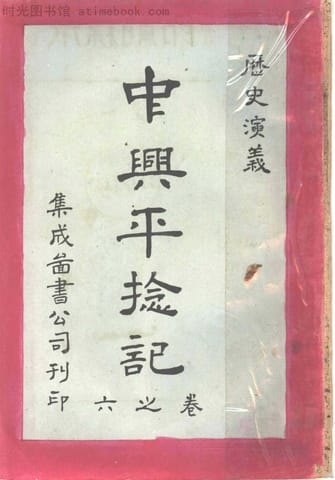 时光图书馆 - atimebook.com
歷史演義
中興平捻記
卷之六
集成啚書公司刊印